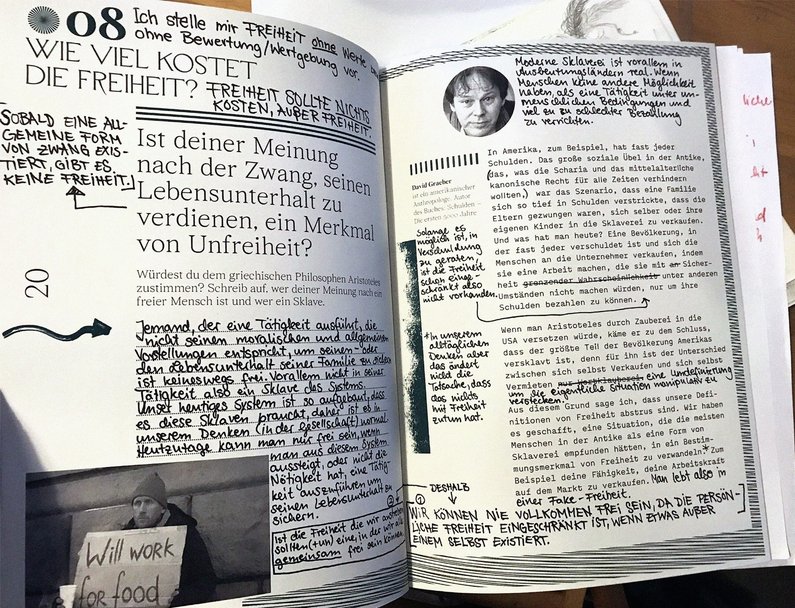 08
Ich stelle mir FREIHEIT ohne Werte
ohne Bewertung/Wertgebung vor.
WIE VIEL KOSTET
DIE FREIHEIT?
FREIHEIT SOLLTE NICHTS
KOSTEN, AUßER FREIHEIT.
SOBALD EINE ALL-
GEMEINE FORM
VON ZWANG EXIS-
TIERT, GIBT ES
KEINE FREIHEIT.
Ist deiner Meinung
nach der Zwang, seinen
Lebensunterhalt zu
verdienen, ein Merkmal
von Unfreiheit?
20
Würdest du dem griechischen Philosophen Aristoteles
zustimmen? Schreib auf, wer deiner Meinung nach ein
freier Mensch ist und wer ein Sklave.
Jemand, der eine Tätigkeit ausführt, die
nicht seinen moralischen und allgemeinen
Vorstellungen entspricht, um seinen- oder
den Lebensunterhalt seiner Familie zu sichern
ist keineswegs frei. Vorallem nicht in seiner
Tätigkeit also ein Sklave des Systems.
Unser heutiges System ist so aufgebaut, dass
es diese Sklaven braucht, daher ist es in
unserem Denken (in der Gesellschaft) normal.
Heutzutage kann man nur frei sein, wenn
man aus diesem System
aussteigt, oder nicht die
Nötigkeit hat, eine Tätig-
keit auszuführen um
seinen Lebensunterhalt zu
sichern.
Ist die Freiheit die wir anstreben
sollten (+un) eine, in der wir alle
gemeinsam frei sein können
Will work
for food
Moderne Sklaverei ist vorallem in
Ausbeutungsländern real. Wenn
Menschen keine andere Möglichkeit
haben, als eine Tätigkeit unter un-
menschlichen Bedingungen und
viel zu zu schlechter Bezahlung
zu verrichten.
David Graeber
ist ein amerikanischer
Anthropologe. Autor
des Buches: Schulden –
Die ersten 5000 Jahre
Solange es
möglich ist, in
Verschuldung
zu geraten,
ist die Freiheit
schon einge-
schränkt also
nicht vorhanden.
+In unserem
alltäglichen
Denken aber
das ändert
nicht die
Tatsache, dass
das nichts
mit Freiheit
zutun hat.
In Amerika, zum Beispiel, hat fast jeder
Schulden. Das große soziale Übel in der Antike,
(das, was die Scharia und das mittelalterliche
kanonische Recht für alle Zeiten verhindern
wollten,) war das Szenario, dass eine Familie
sich so tief in Schulden verstrickte, dass die
Eltern gezwungen waren, sich selber oder ihre
eigenen Kinder in die Sklaverei zu verkaufen.
Und was hat man heute? Eine Bevölkerung, in
der fast jeder verschuldet ist und sich die
Menschen an die Unternehmer verkaufen, indem
sie eine Arbeit machen, die sie mit an Sicher-
heit grenzender Wahrscheinlichkeit unter anderen
Umständen nicht machen würden, nur um ihre
Schulden bezahlen zu können.
Wenn man Aristoteles durch Zauberei in die
USA versetzen würde, käme er zu dem Schluss,
dass der größte Teil der Bevölkerung Amerikas
versklavt ist, denn für ihn ist der Unterschied
zwischen sich selbst Verkaufen und sich selbst
Vermieten nur Wortklauberei eine Umdefinierung
um die eigentliche Situation manipulativ zu
verstecken.
Aus diesem Grund sage ich, dass unsere Defi-
nitionen von Freiheit abstrus sind. Wir haben
es geschafft, eine Situation, die die meisten
Menschen in der Antike als eine Form von
Sklaverei empfunden hätten, in ein Bestim-
mungsmerkmal von Freiheit zu verwandeln.* Zum
Beispiel deine Fähigkeit, deine Arbeitskraft
auf dem Markt zu verkaufen. Man lebt also in
einer Fake-Freiheit.
DESHALB
WIR KÖNNEN NIE VOLLKOMMEN FREI SEIN, DA DIE PERSÖN-
LICHE FREIHEIT EINGESCHRÄNKT IST, WENN ETWAS AUßER
EINEM SELBST EXISTIERT.